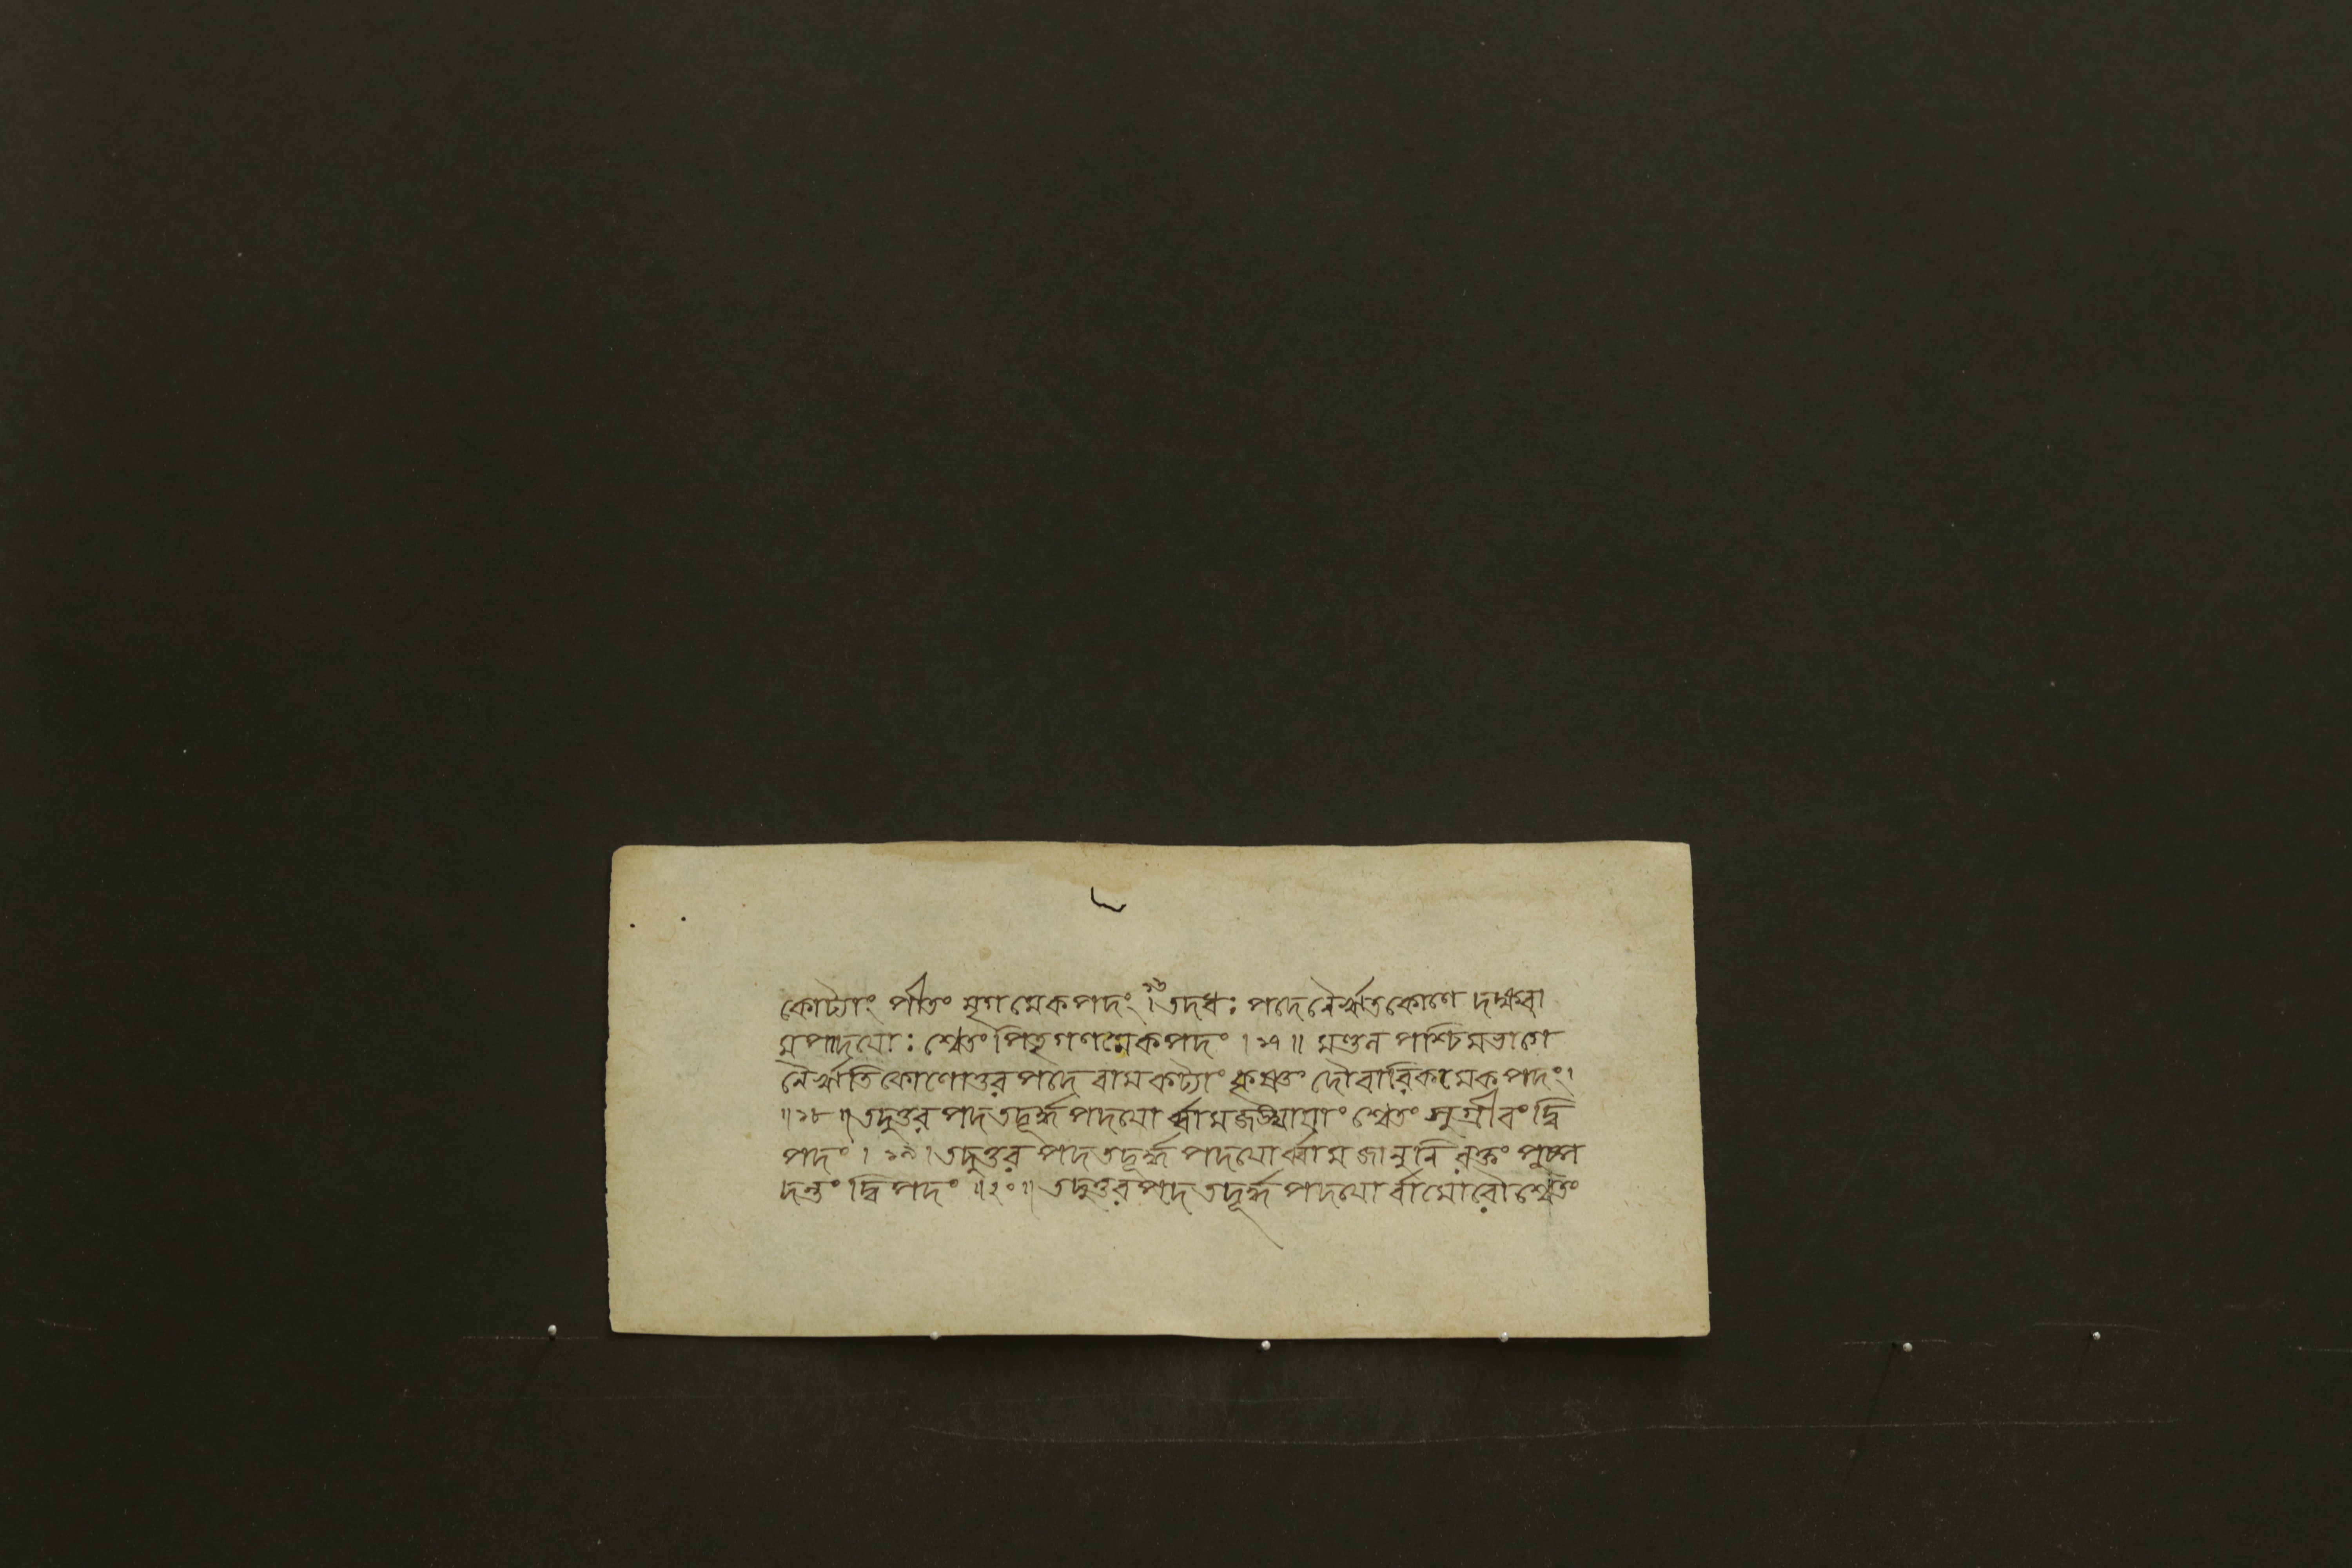 কোট্যাং পীতং মৃগমেকপদং ।১৬ তদধঃ পদে নৈর্ঋতকোণে দক্ষবা
মপাদয়োঃ শ্বেতং পিতৃগণমেকপদং । ১৭ ॥ মণ্ডল পশ্চিমভাগে
নৈর্ঋতিকোণোত্তরপদে বামকট্যাং কৃষ্ণং দৌবারিকমেকপদং।
॥ ১৮ ॥ তদুত্তর পদতদূর্দ্ধপদয়োর্ব্বামজঙ্ঘায়াং শ্বেতং সুগ্রীবং দ্বি
পদং । ১৯ । তদুত্তর পদতদূর্দ্ধ পদয়োর্ব্বামজানুনি রক্তং পুষ্প
দন্তং দ্বিপদং ॥ ২০ ॥ তদুত্তরপদ তদূর্দ্ধপদয়োর্বামোরৌ শ্বেতং